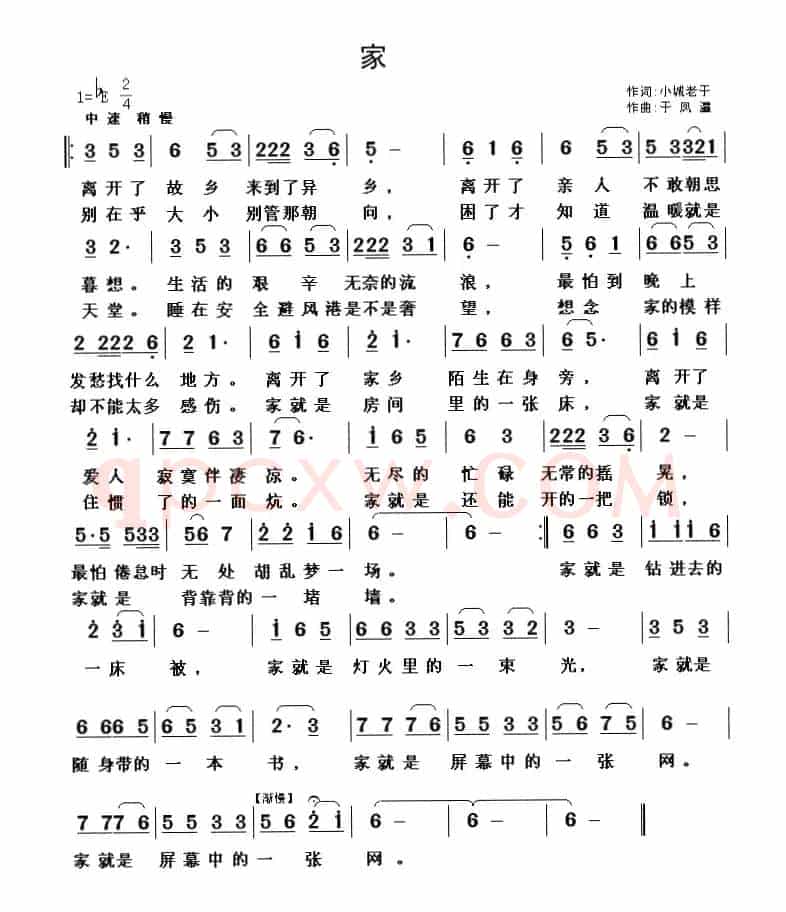 家
1=♭E 2/4
作词:小城老于
作曲:于凤
中速 稍慢
3 5 3 | 6 5 3 | 222 3 6 | 5 – | 6 1 6 | 6 5 3 | 5 3321
离开了 故乡 来到了异 乡， 离开了 亲人 不敢朝思
别在乎 大小 别管那朝 向， 困了才 知道 温暖就是
3 2· | 3 5 3 | 6 6 5 3 | 222 3 1 | 6 – | 5 6 1 | 6 65 3
暮想。 生活的 艰辛 无奈的流 浪， 最怕到 晚上
天堂。 睡在安 全避风港是不是奢 望， 想念 家的模样
2 222 6 | 2 1· | 6 1 6 | 2 1· | 7 6 6 3 | 6 5· | 6 1 6
发愁找什么 地方。 离开了 家乡 陌生在身 旁， 离开了
却不能太多 感伤。 家就是 房间 里的一张 床， 家就是
2 1· | 7 7 6 3 | 7 6· | 1 6 5 | 6 3 | 222 3 6 | 2 –
爱人 寂寞伴凄 凉。 无尽的 忙碌 无常的摇 晃，
住惯 了的一面 炕。 家就是 还能 开的一把 锁，
5·5 533 | 56 7 | 2 2 1 | 6 – | 6 – :| 6 6 3 | 1 11 6
最怕倦怠时 无处 胡乱梦一 场。 家就是 钻进去的
家就是 背靠背的一 堵 墙。
2 3 1 | 6 – | 1 6 5 | 6 6 3 3 | 5 3 3 2 | 3 – | 3 5 3
一床 被， 家就是 灯火里的 一束 光， 家就是
6 66 5 | 6 5 3 1 | 2· 3 | 7 7 7 6 | 5 5 3 3 | 5 6 7 5 | 6 –
随身带的 一本 书， 家就是 屏幕中的 一张 网。
【渐慢】
7 77 6 | 5 5 3 3 | 5 6 2 1 | 6 – | 6 – | 6 – ‖
家就是 屏幕中的一 张 网。
qpcxw.com